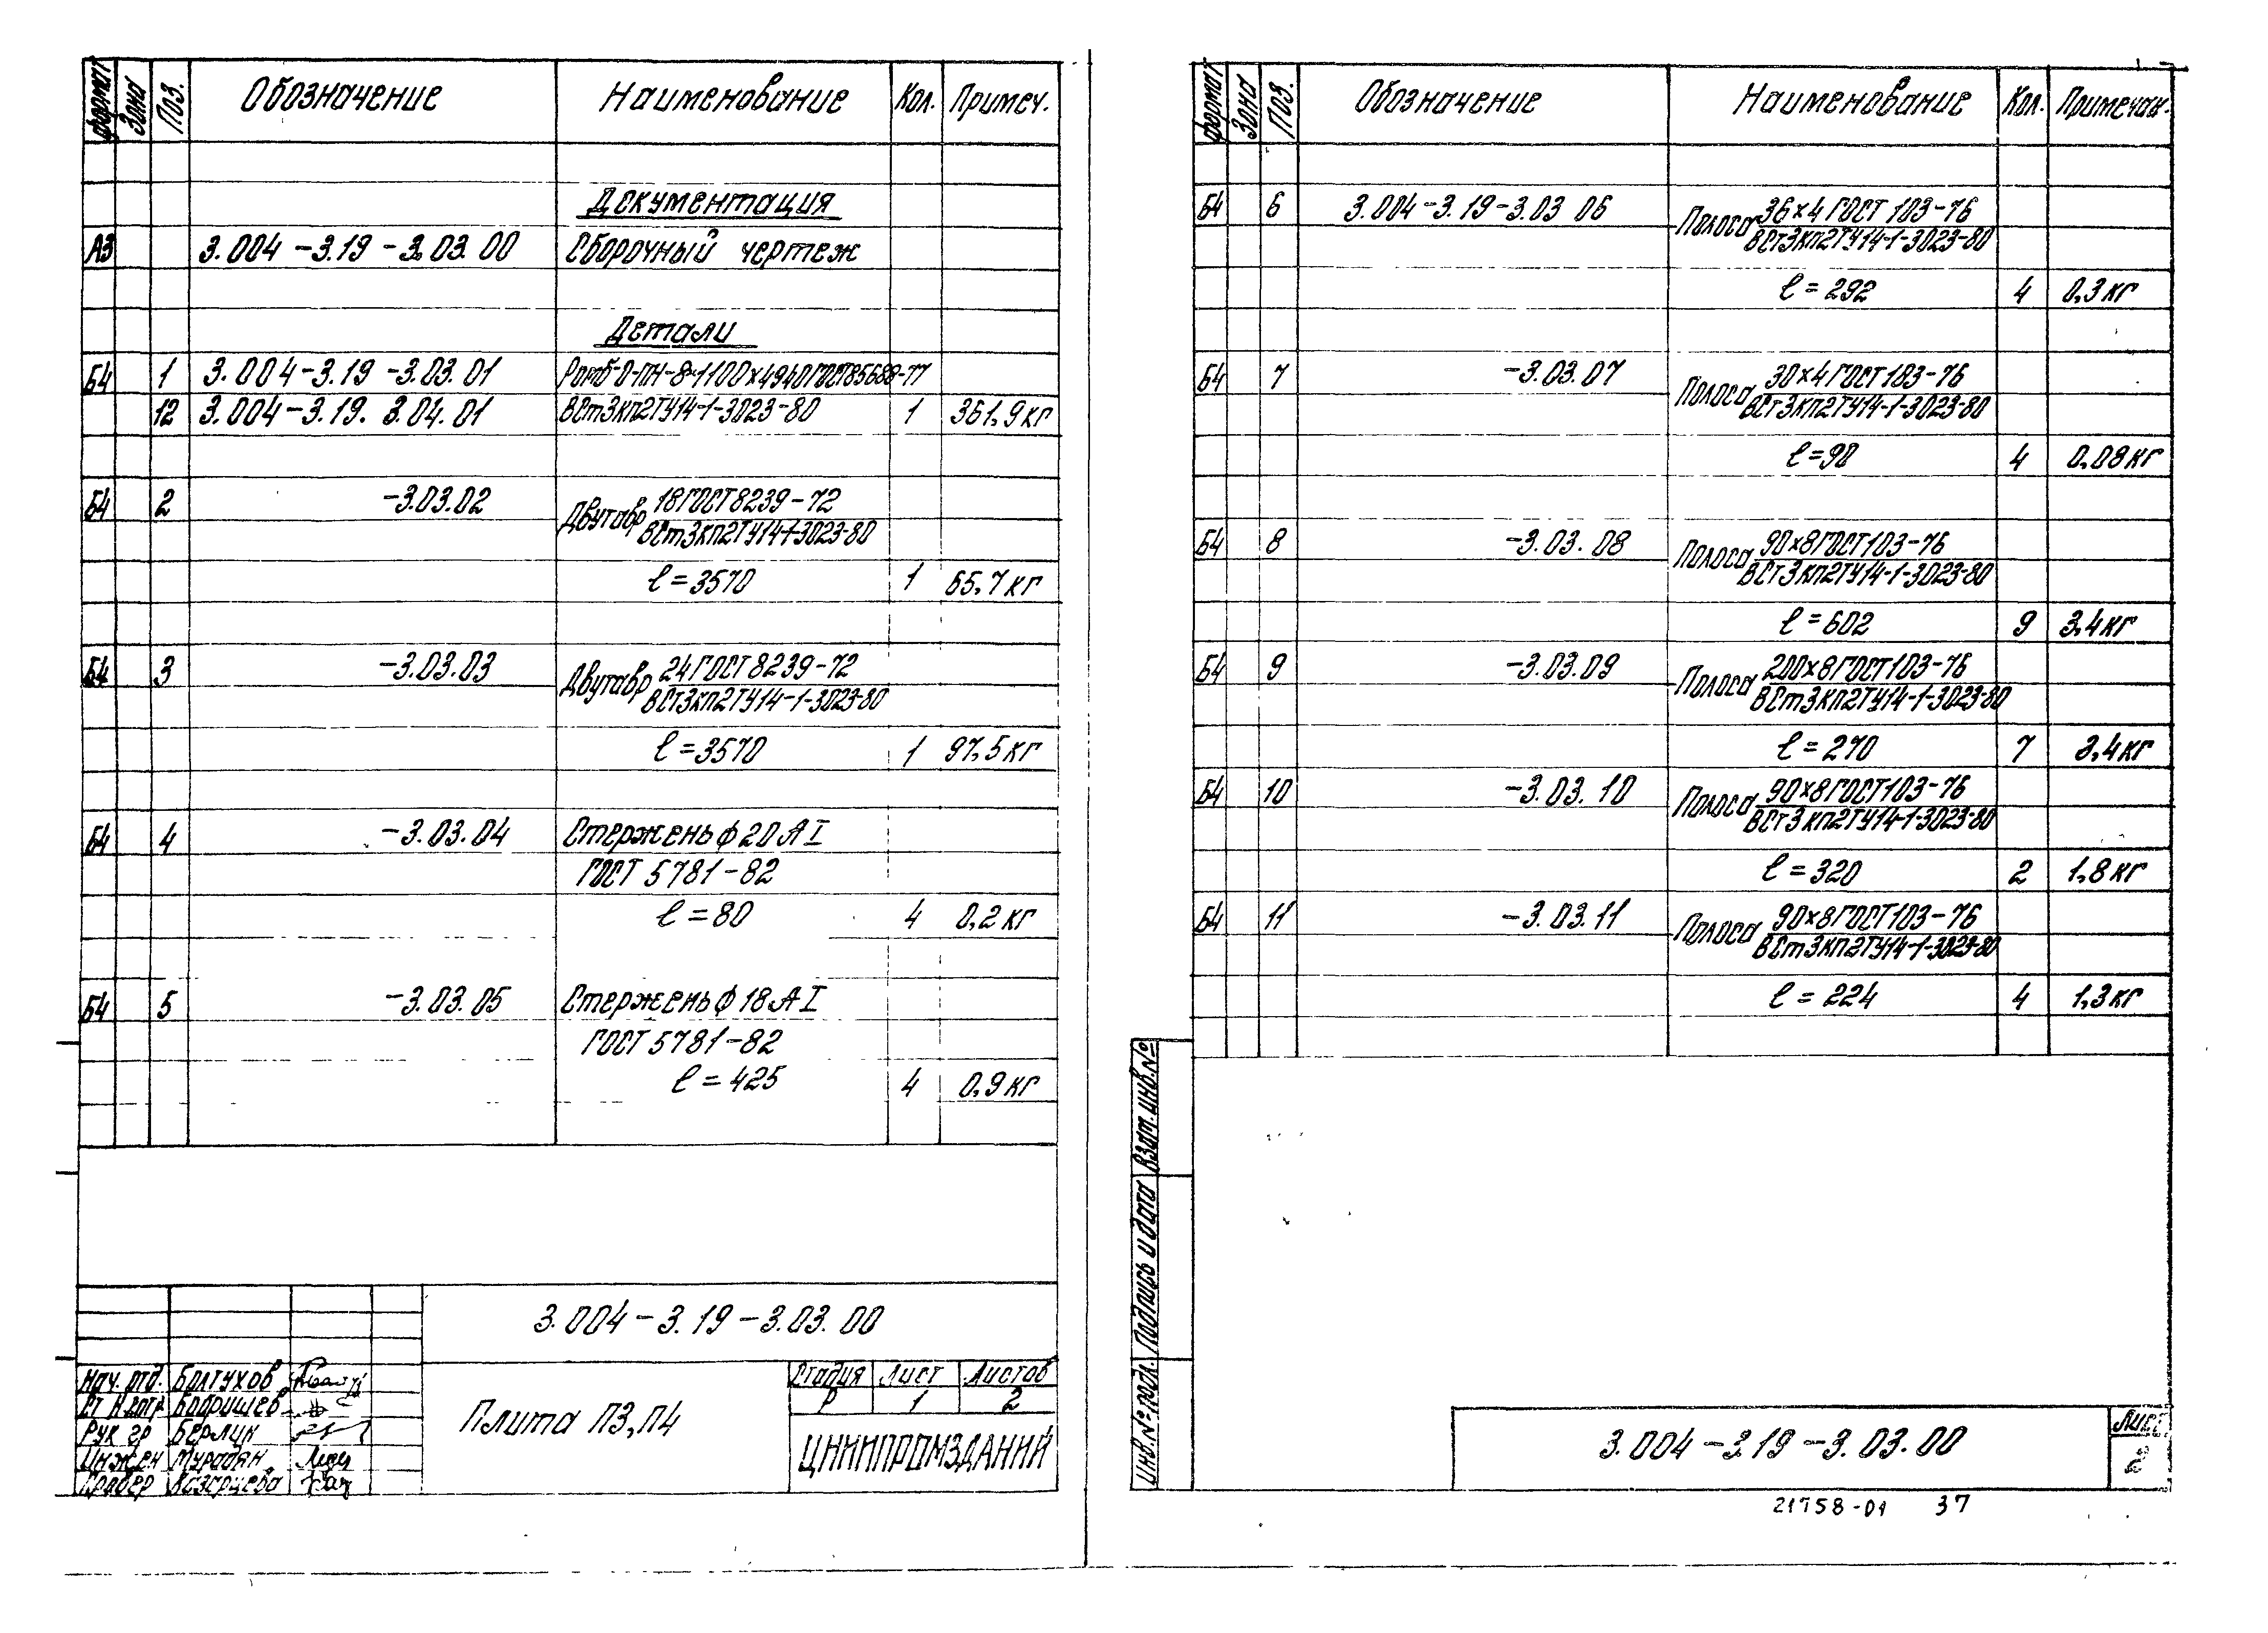 формат Зона Поз. Обозначение Наименование Кол. Примеч.
Документация
А3 3.004-3.19-3.03.00 Сборочный чертеж
Детали
Б4 1 3.004-3.19-3.03.01 Ромб-О-ПН-8×1100×4940 ГОСТ85688-77
12 3.004-3.19. 3.04.01 ВСт3кп2ТУ14-1-3023-80 1 361,9кг
Б4 2 -3.03.02 Двутавр 18ГОСТ8239-72
ВСт3кп2ТУ14-1-3023-80
ℓ=3570 1 65,7кг
Б4 3 -3.03.03 Двутавр 24ГОСТ8239-72
ВСт3кп2ТУ14-1-3023-80
ℓ=3570 1 97,5кг
Б4 4 -3.03.04 Стержень ф20АI
ГОСТ 5781-82
ℓ=80 4 0,2кг
Б4 5 -3.03.05 Стержень ф18АI
ГОСТ 5781-82
ℓ=425 4 0,9кг
3.004-3.19-3.03.00
Нач. отд. Болтухов
Бобришев
Рук гр Берлин
Инжен Мурадян
Провер Казарцева
Плита П3,П4
Стадия Лист Листов
Р 1 2
ЦНИИПРОМЗДАНИЙ
формат Зона Поз. Обозначение Наименование Кол. Примечан.
Б4 6 3.004-3.19-3.03 06 Полоса 36×4ГОСТ 103-76
ВСт3кп2ТУ14-1-3023-80
ℓ=292 4 0,3кг
Б4 7 -3.03.07 Полоса 30×4ГОСТ103-76
ВСт3кп2ТУ14-1-3023-80
ℓ=90 4 0,08кг
Б4 8 -3.03.08 Полоса 90×8ГОСТ103-76
ВСт3кп2ТУ14-1-3023-80
ℓ=602 9 3,4кг
Б4 9 -3.03.09 Полоса 200×8ГОСТ103-76
ВСт3кп2ТУ14-1-3023-80
ℓ=270 7 3,4кг
Б4 10 -3.03.10 Полоса 90×8ГОСТ103-76
ВСт3кп2ТУ14-1-3023-80
ℓ=320 2 1,8кг
Б4 11 -3.03.11 Полоса 90×8ГОСТ103-76
ВСт3кп2ТУ14-1-3023-80
ℓ=224 4 1,3кг
Инв.№подл. Подпись и дата Взам.инв.№
3.004-3.19-3.03.00
Лист
2
21758-01 37